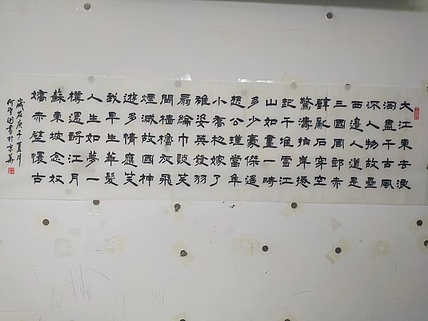 大江東去浪
淘盡千古風
流人物故壘
西邊人道是
三國周郎赤
壁亂石穿空
驚濤拍岸捲
起千堆雪江
山如畫一時
多少豪傑遙
想公瑾當年
小喬初嫁了
雄姿英發羽
扇綸巾談笑
間檣櫓灰飛
煙滅故國神
遊多情應笑
我早生華髮
人生如夢一
樽還酹江月
蘇東坡念奴
嬌赤壁懷古
歲在庚子夏月
書於京華